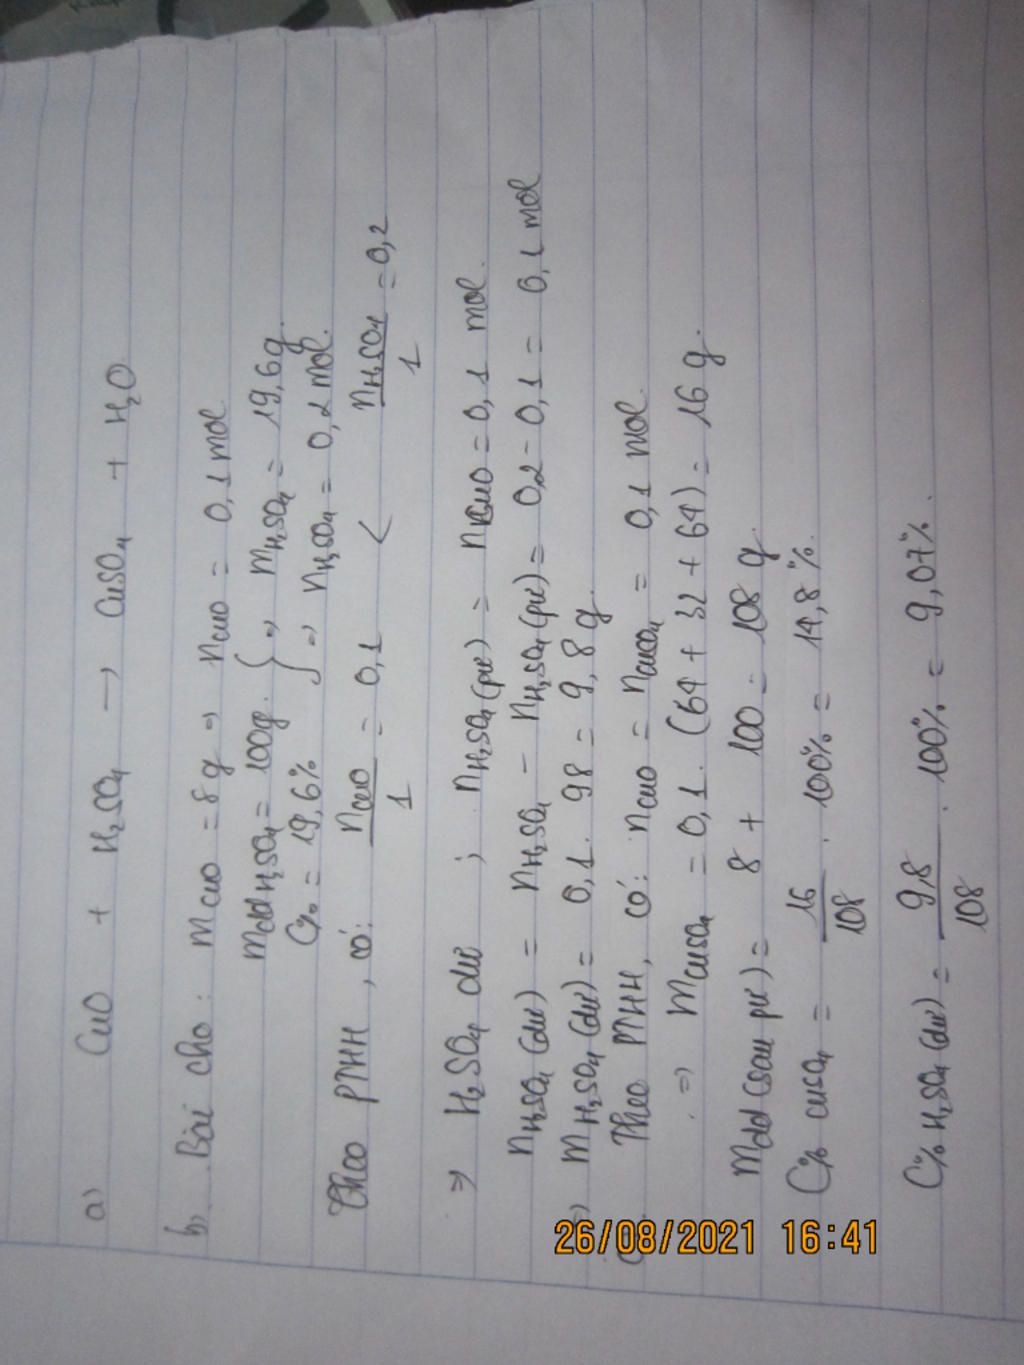 a) CuO + H₂SO₄ → CuSO₄ + H₂O
b, Bài cho: mCuO = 8g ⇒ nCuO = 0,1 mol
mdd H₂SO₄ = 100g. } ⇒ mH₂SO₄ = 19,6g.
C% = 19,6% ⇒ nH₂SO₄ = 0,2 mol.
Theo PTHH, có: nCuO/1 = 0,1 < nH₂SO₄/1 = 0,2
⇒ H₂SO₄ dư ; nH₂SO₄(pư) = nCuO = 0,1 mol.
nH₂SO₄(dư) = nH₂SO₄ - nH₂SO₄(pư) = 0,2 - 0,1 = 0,1 mol
⇒ mH₂SO₄(dư) = 0,1 . 98 = 9,8g.
Theo PTHH, có: nCuO = nCuSO₄ = 0,1 mol
⇒ mCuSO₄ = 0,1 . (64 + 32 + 64) = 16 g.
mdd (sau pư) = 8 + 100 = 108 g
C% CuSO₄ = 16/108 . 100% = 14,8%.
C% H₂SO₄(dư) = 9,8/108 . 100% = 9,07%.
26/08/2021 16:41